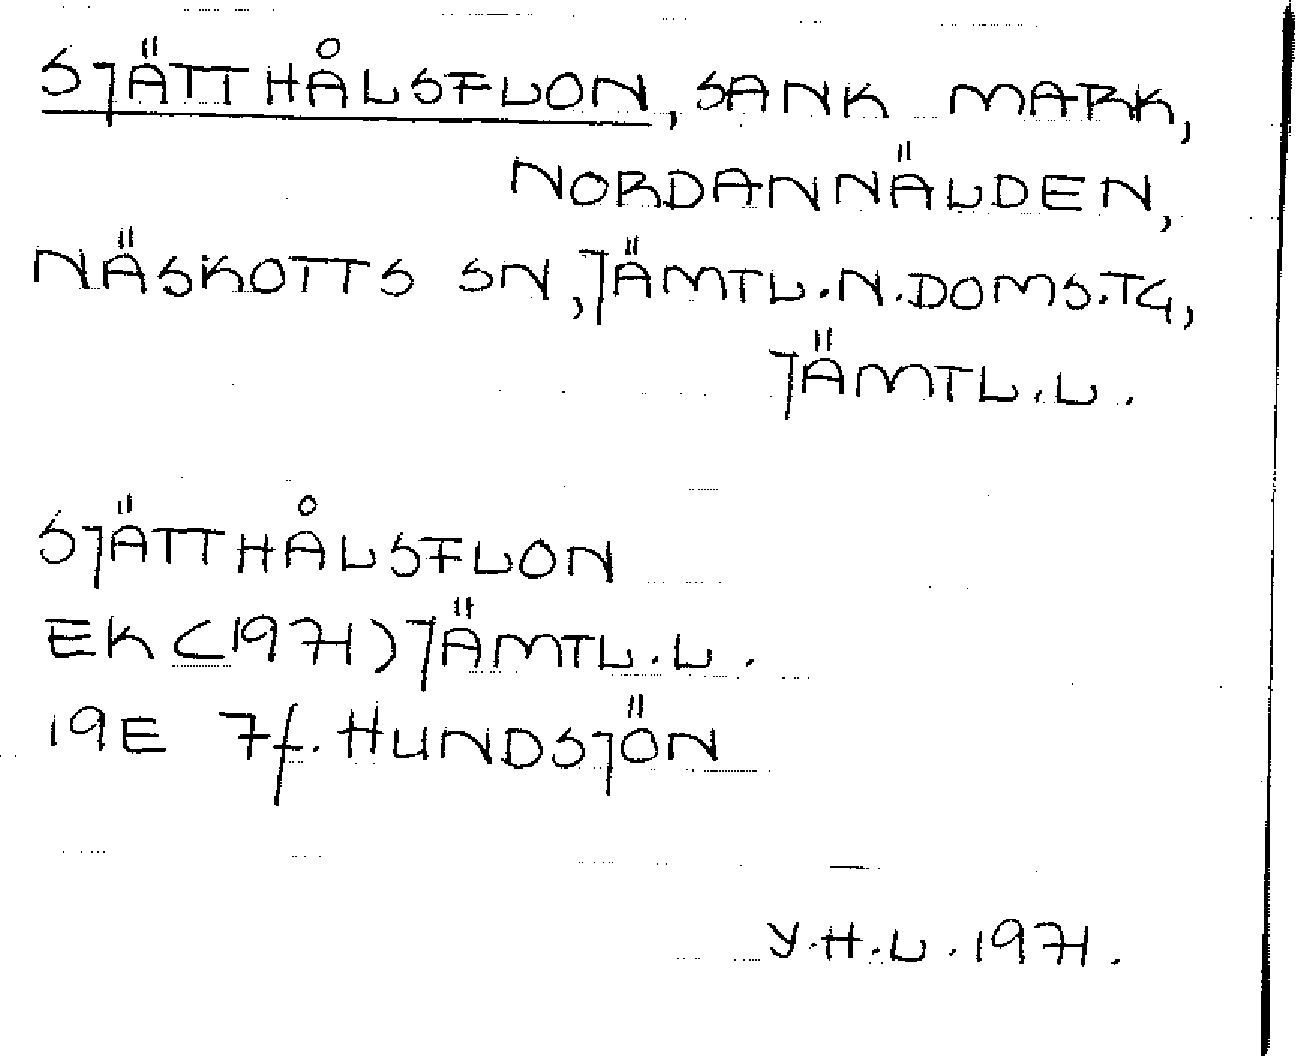 SJÄTTHÅLSFLON, SANK MARK,
NORDANNÄLDEN,
NÄSKOTTS SN, JÄMTL.N.DOMS.TG,
JÄMTL.L.
SJÄTTHÅLSFLON
EK (1971) JÄMTL.L.
19E 7f. HUNDSJÖN
Y.H.L. 1971.